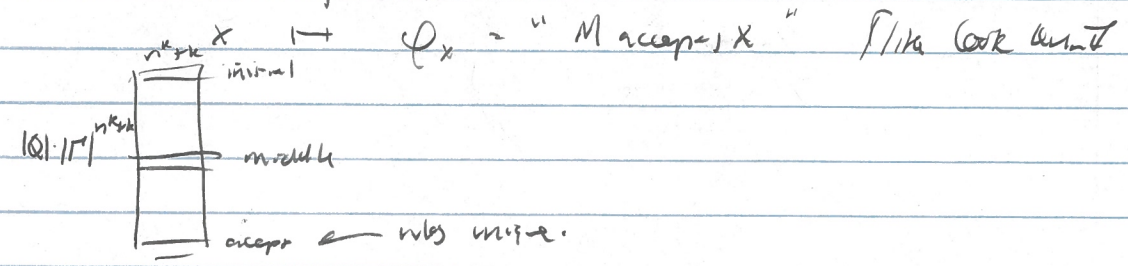 x ↦ φ_x = "M accepts x" like Cook
n^k+k
initial
|Q|·|Γ|^{n^k+k}
middle
accept ← wlog unique.